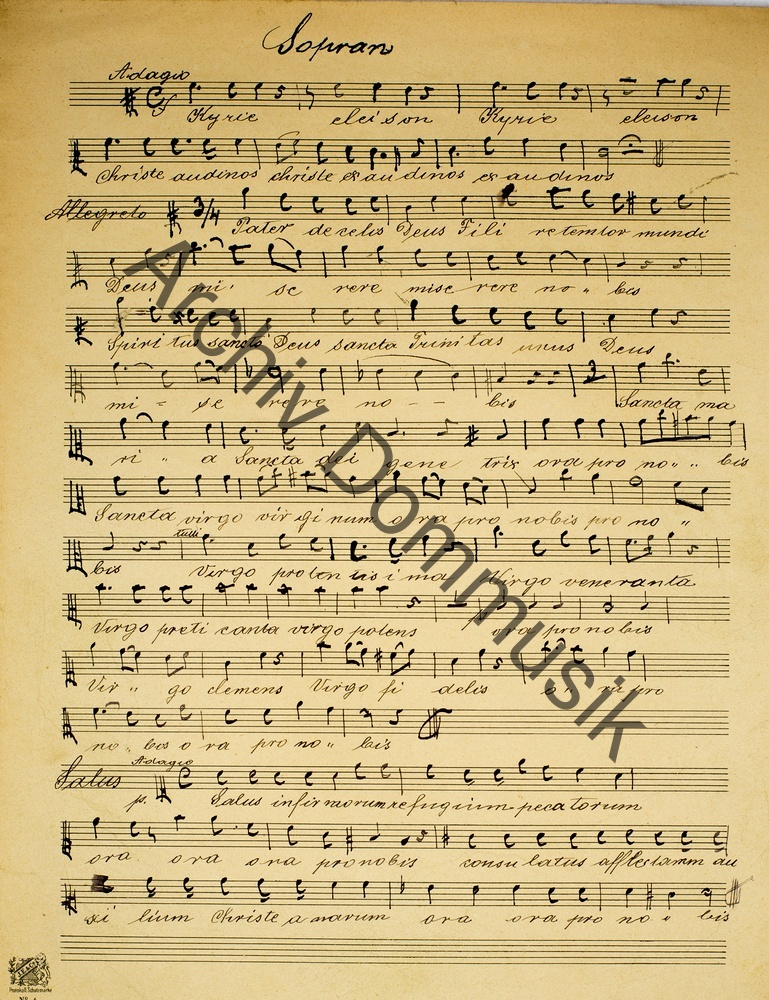 Sopran
Adagio
Kyrie eleison Kyrie eleison
Christe audinos christe exaudinos exaudinos
Allegreto 3/4
Pater decelis Deus Fili retemtor mundi
Deus mi se rere mise rere no " bis
Spiri tus sancte Deus sancta Trinitas unus Deus
mi = se rere no - - bis Sancta ma
ri " a Sancta dei gene trix ora pro no " " bis
Sancta virgo vir gi num o ra pro nobis pro no "
tutti
bis Virgo proten ma Virgo veneranta
Virgo preti canta virgo potens ora pro nobis
Vir " go clemens Virgo fi delis o " ra pro
no " bis o ra pro no " bis
Adagio
Salus
p. Salus infirmorum refugium pecatorum
ora ora ora pro nobis consulatus au
xi lium Christe a norum ora ora pro no " bis
Archiv Dommusik